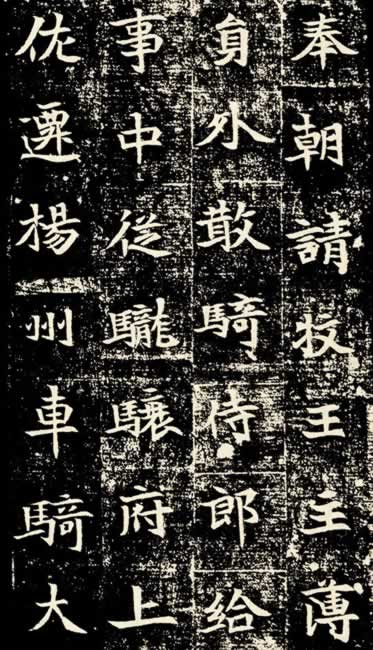 奉朝請牧王主薄
員外散騎侍郎給
事中從䮾驤府上
佐遷楊州車騎大